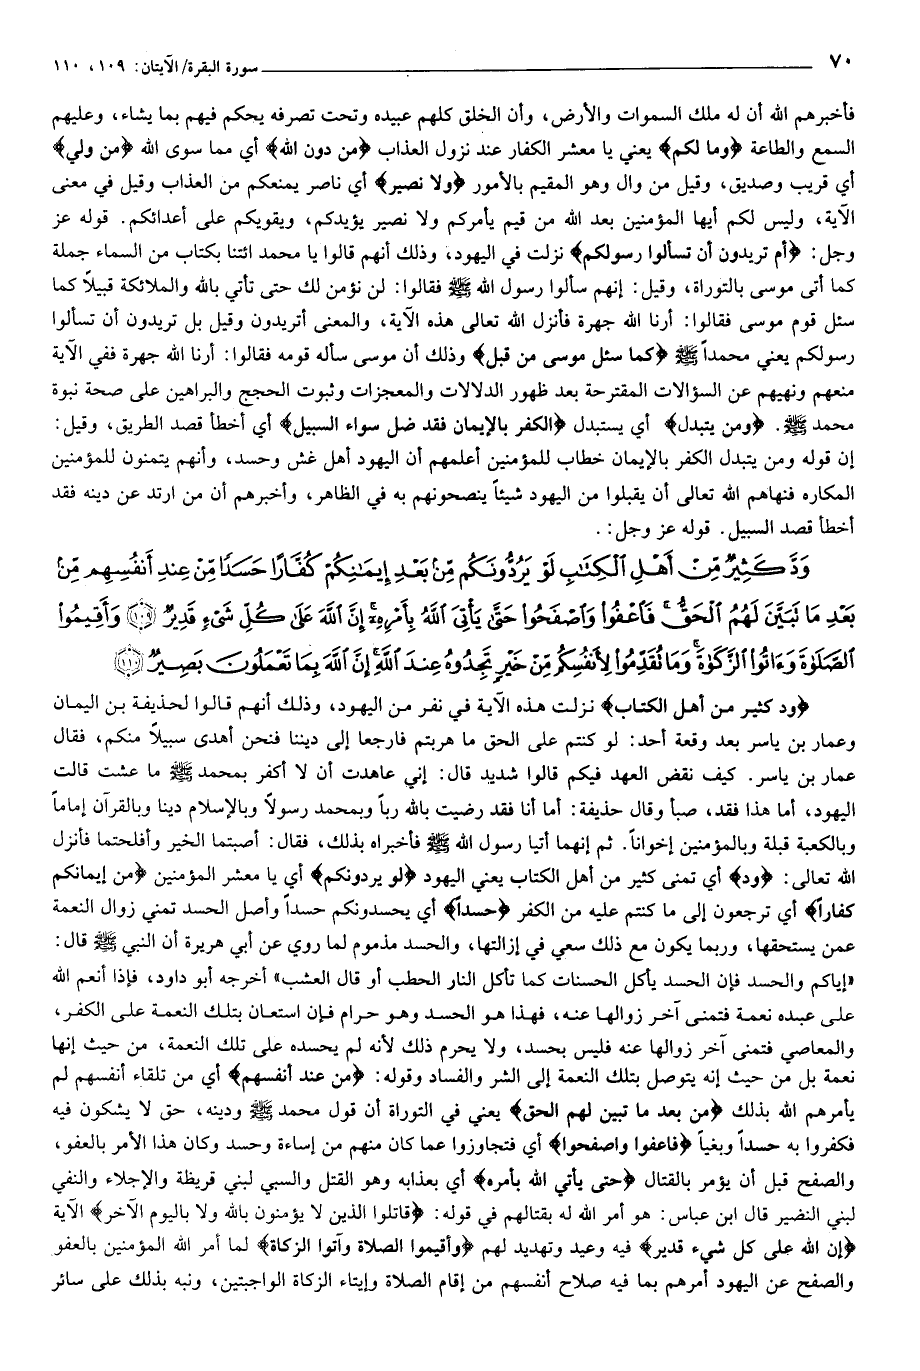 ٧٠ سورة البقرة/ الآيتان: ١٠٩، ١١٠
فأخبرهم الله أن له ملك السموات والأرض، وأن الخلق كلهم عبيده وتحت تصرفه يحكم فيهم بما يشاء، وعليهم
السمع والطاعة ﴿وما لكم﴾ يعني يا معشر الكفار عند نزول العذاب ﴿من دون الله﴾ أي مما سوى الله ﴿من ولي﴾
أي قريب وصديق، وقيل من وال وهو المقيم بالأمور ﴿ولا نصير﴾ أي ناصر يمنعكم من العذاب وقيل في معنى
الآية، وليس لكم أيها المؤمنين بعد الله من قيم يأمركم ولا نصير يؤيدكم، ويقويكم على أعدائكم. قوله عز
وجل: ﴿أم تريدون أن تسألوا رسولكم﴾ نزلت في اليهود، وذلك أنهم قالوا يا محمد ائتنا بكتاب من السماء جملة
كما أتى موسى بالتوراة، وقيل: إنهم سألوا رسول الله ﷺ فقالوا: لن نؤمن لك حتى تأتي بالله والملائكة قبيلاً كما
سئل قوم موسى فقالوا: أرنا الله جهرة فأنزل الله تعالى هذه الآية، والمعنى أتريدون وقيل بل تريدون أن تسألوا
رسولكم يعني محمداً ﷺ ﴿كما سئل موسى من قبل﴾ وذلك أن موسى سأله قومه فقالوا: أرنا الله جهرة ففي الآية
منعهم ونهيهم عن السؤالات المقترحة بعد ظهور الدلالات والمعجزات وثبوت الحجج والبراهين على صحة نبوة
محمد ﷺ. ﴿ومن يتبدل﴾ أي يستبدل ﴿الكفر بالإيمان فقد ضل سواء السبيل﴾ أي أخطأ قصد الطريق، وقيل:
إن قوله ومن يتبدل الكفر بالإيمان خطاب للمؤمنين أعلمهم أن اليهود أهل غش وحسد، وأنهم يتمنون للمؤمنين
المكاره فنهاهم الله تعالى أن يقبلوا من اليهود شيئاً ينصحونهم به في الظاهر، وأخبرهم أن من ارتد عن دينه فقد
أخطأ قصد السبيل. قوله عز وجل: .
وَدَّ كَثِيرٌ مِّنْ أَهْلِ ٱلْكِتَٰبِ لَوْ يَرُدُّونَكُم مِّنۢ بَعْدِ إِيمَٰنِكُمْ كُفَّارًا حَسَدًا مِّنْ عِندِ أَنفُسِهِم مِّنۢ
بَعْدِ مَا تَبَيَّنَ لَهُمُ ٱلْحَقُّ فَٱعْفُوا۟ وَٱصْفَحُوا۟ حَتَّىٰ يَأْتِىَ ٱللَّهُ بِأَمْرِهِۦٓ إِنَّ ٱللَّهَ عَلَىٰ كُلِّ شَىْءٍ قَدِيرٌ ﴿١٠٩﴾ وَأَقِيمُوا۟
ٱلصَّلَوٰةَ وَءَاتُوا۟ ٱلزَّكَوٰةَ وَمَا تُقَدِّمُوا۟ لِأَنفُسِكُم مِّنْ خَيْرٍ تَجِدُوهُ عِندَ ٱللَّهِ إِنَّ ٱللَّهَ بِمَا تَعْمَلُونَ بَصِيرٌ ﴿١١٠﴾
﴿ود كثير من أهل الكتاب﴾ نزلت هذه الآية في نفر من اليهود، وذلك أنهم قالوا لحذيفة بن اليمان
وعمار بن ياسر بعد وقعة أحد: لو كنتم على الحق ما هربتم فارجعا إلى ديننا فنحن أهدى سبيلاً منكم، فقال
عمار بن ياسر. كيف نقض العهد فيكم قالوا شديد قال: إني عاهدت أن لا أكفر بمحمد ﷺ ما عشت قالت
اليهود، أما هذا فقد، صبأ وقال حذيفة: أما أنا فقد رضيت بالله رباً وبمحمد رسولاً وبالإسلام دينا وبالقرآن إماماً
وبالكعبة قبلة وبالمؤمنين إخواناً. ثم إنهما أتيا رسول الله ﷺ فأخبراه بذلك، فقال: أصبتما الخير وأفلحتما فأنزل
الله تعالى: ﴿ود﴾ أي تمنى كثير من أهل الكتاب يعني اليهود ﴿لو يردونكم﴾ أي يا معشر المؤمنين ﴿من إيمانكم
كفاراً﴾ أي ترجعون إلى ما كنتم عليه من الكفر ﴿حسداً﴾ أي يحسدونكم حسداً وأصل الحسد تمني زوال النعمة
عمن يستحقها، وربما يكون مع ذلك سعي في إزالتها، والحسد مذموم لما روي عن أبي هريرة أن النبي ﷺ قال:
«إياكم والحسد فإن الحسد يأكل الحسنات كما تأكل النار الحطب أو قال العشب» أخرجه أبو داود، فإذا أنعم الله
على عبده نعمة فتمنى آخر زوالها عنه، فهذا هو الحسد وهو حرام فإن استعان بتلك النعمة على الكفر،
والمعاصي فتمنى آخر زوالها عنه فليس بحسد، ولا يحرم ذلك لأنه لم يحسده على تلك النعمة، من حيث إنها
نعمة بل من حيث إنه يتوصل بتلك النعمة إلى الشر والفساد وقوله: ﴿من عند أنفسهم﴾ أي من تلقاء أنفسهم لم
يأمرهم الله بذلك ﴿من بعد ما تبين لهم الحق﴾ يعني في التوراة أن قول محمد ﷺ ودينه، حق لا يشكون فيه
فكفروا به حسداً وبغياً ﴿فاعفوا واصفحوا﴾ أي فتجاوزوا عما كان منهم من إساءة وحسد وكان هذا الأمر بالعفو،
والصفح قبل أن يؤمر بالقتال ﴿حتى يأتي الله بأمره﴾ أي بعذابه وهو القتل والسبي لبني قريظة والإجلاء والنفي
لبني النضير قال ابن عباس: هو أمر الله له بقتالهم في قوله: ﴿قاتلوا الذين لا يؤمنون بالله ولا باليوم الآخر﴾ الآية
﴿إن الله على كل شيء قدير﴾ فيه وعيد وتهديد لهم ﴿وأقيموا الصلاة وآتوا الزكاة﴾ لما أمر الله المؤمنين بالعفو
والصفح عن اليهود أمرهم بما فيه صلاح أنفسهم من إقام الصلاة وإيتاء الزكاة الواجبتين، ونبه بذلك على سائر